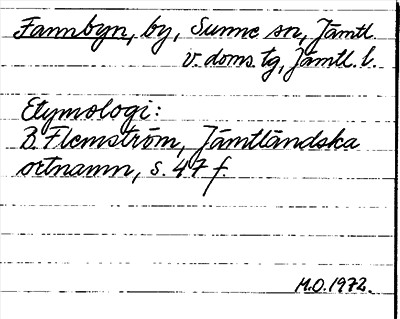 Fannbyn, by, Sunne sn, Jämtl.
v. doms. tg, Jämtl. l.
Etymologi:
B Flemström, Jämtländska
ortnamn, s. 47 f.
M.O. 1972.